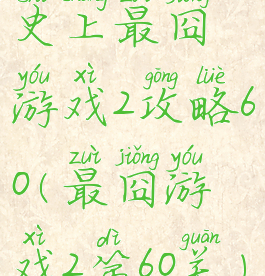 史上最囧
yóu xì gōng lüè
游戏2攻略6
zuì jiǒng yóu
0(最囧游
xì dì guān
戏2第60关)